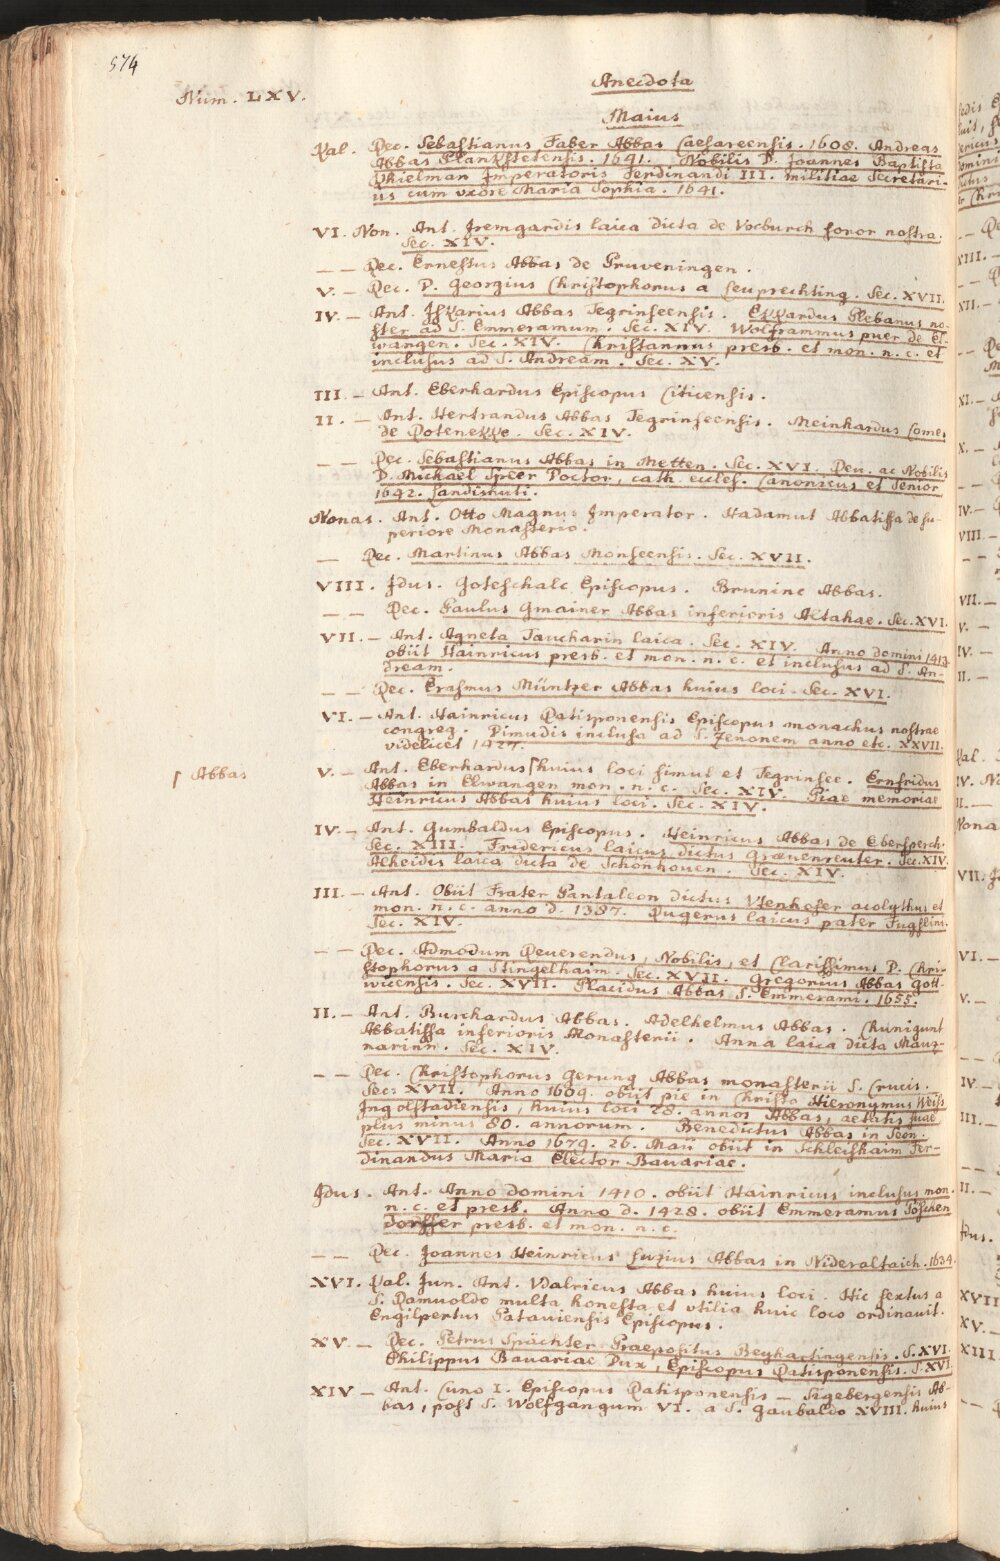 574
Anecdota
Num. LXV.
Maius
Kal. Rec. Sebastianus Faber Abbas Caesareensis. 1608. Andreas
Abbas Plankstetensis. 1641. Nobilis D. Joannes Baptista
Thielman Imperatoris Ferdinandi III. militiae Secretari-
us cum uxore Maria Sophia. 1641.
VI. Non. Ant. Iremgardis laica dicta de Vocburch soror nostra.
Sec. XIV.
— — Rec. Ernestus Abbas de Pruveningen.
V. — Rec. D. Georgius Christophorus a Leuprechting. Sec. XVII.
IV. — Ant. Isskarius Abbas Tegrinseensis. Ekkardus Plebanus no-
ster ad S. Emmeramum. Sec. XIV. Wolframmus puer de El-
wangen. Sec. XIV. Christannus presb. et mon. n. c. et
inclusus ad S. Andream. Sec. XV.
III — Ant. Eberhardus Episcopus Citicensis.
II. — Ant. Hertrandus Abbas Tegrinseensis. Meinhardus Comes
de Rotenekke. Sec. XIV.
— — Rec. Sebastianus Abbas in Metten. Sec. XVI. Reu. ac Nobilis
D. Michael Speer Doctor, cath. eccles. Canonicus et Senior
1642. Landishuti.
Nonas. Ant. Otto Magnus Imperator. Hadamut Abbatissa de su-
periore Monasterio.
— Rec. Martinus Abbas Monseensis. Sec. XVII.
VIII. Idus. Goteschalc Episcopus. Bruninc Abbas.
— — Rec. Paulus Gmainer Abbas inferioris Altahae. Sec. XVI.
VII. — Ant. Agneta Taucharin laica. Sec. XIV. Anno domini 1413
obiit Hainricus presb. et mon. n. c. et inclusus ad S. An-
dream.
— — Rec. Erasmus Müntzer Abbas huius loci. Sec. XVI.
VI. — Ant. Hainricus Ratisponensis Episcopus monachus nostrae
congreg. Dimudis inclusa ad S. Zenonem anno etc. XXVII.
videlicet 1427.
ſ Abbas
V. — Ant. Eberhardus ſ huius loci simul et Tegrinsee. Ernfridus
Abbas in Elwangen mon. n. c. Sec. XIV. Piae memoriae
Heinricus Abbas huius loci. Sec. XIV.
IV. — Ant. Gumbaldus Episcopus. Heinricus Abbas de Ebersperch.
Sec. XIII. Fridericus laicus dictus Graenenreuter. Sec. XIV.
Alheidis laica dicta de Schönhouen. Sec. XIV.
III. — Ant. Obiit Frater Pantaleon dictus Vtenhefer acolythus et
mon. n. c. anno d. 1387. Rugerus laicus pater Fugslini.
Sec. XIV.
— — Rec. Admodum Reuerendus, Nobilis, et Clarissimus D. Chri-
stophorus a Stingelhaim. Sec. XVII. Gregorius Abbas Gott-
wicensis. Sec. XVII. Placidus Abbas S. Emmerami. 1655.
II. — Ant. Burchardus Abbas. Adelhelmus Abbas. Chunigunt
Abbatissa inferioris Monasterii. Anna laica dicta Mauz-
narinn. Sec. XIV.
— — Rec. Christophorus Gerung Abbas monasterii S. Crucis.
Sec. XVII. Anno 1609. obiit pie in Christo Hieronymus Weiss
Ingolstadiensis, huius loci 28. annos Abbas, aetatis suae
plus minus 80. annorum. Benedictus Abbas in Seon.
Sec. XVII. Anno 1679. 26. Maii obiit in Schleishaim Fer-
dinandus Maria Elector Bauariae.
Idus. Ant. Anno domini 1410. obiit Hainricus inclusus mon.
n. c. et presb. Anno d. 1428. obiit Emmeramus Töschen
dorffer presb. et mon. n. c.
— — Rec. Joannes Heinricus Luzius Abbas in Nideraltaich. 1634.
XVI. Kal. Jun. Ant. Vdalricus Abbas huius loci. Hic sextus a
S. Ramuoldo multa honesta et vtilia huic loco ordinauit.
Engilpertus Patauiensis Episcopus.
XV — Rec. Petrus Spächter Praepositus Beyhartingensis. S. XVI.
Philippus Bauariae Dux, Episcopus Ratisponensis. S. XVI.
XIV — Ant. Cuno I. Episcopus Ratisponensis — Sigebergensis Ab-
bas, post S. Wolfgangum VI. a S. Gaubaldo XVIII. huius